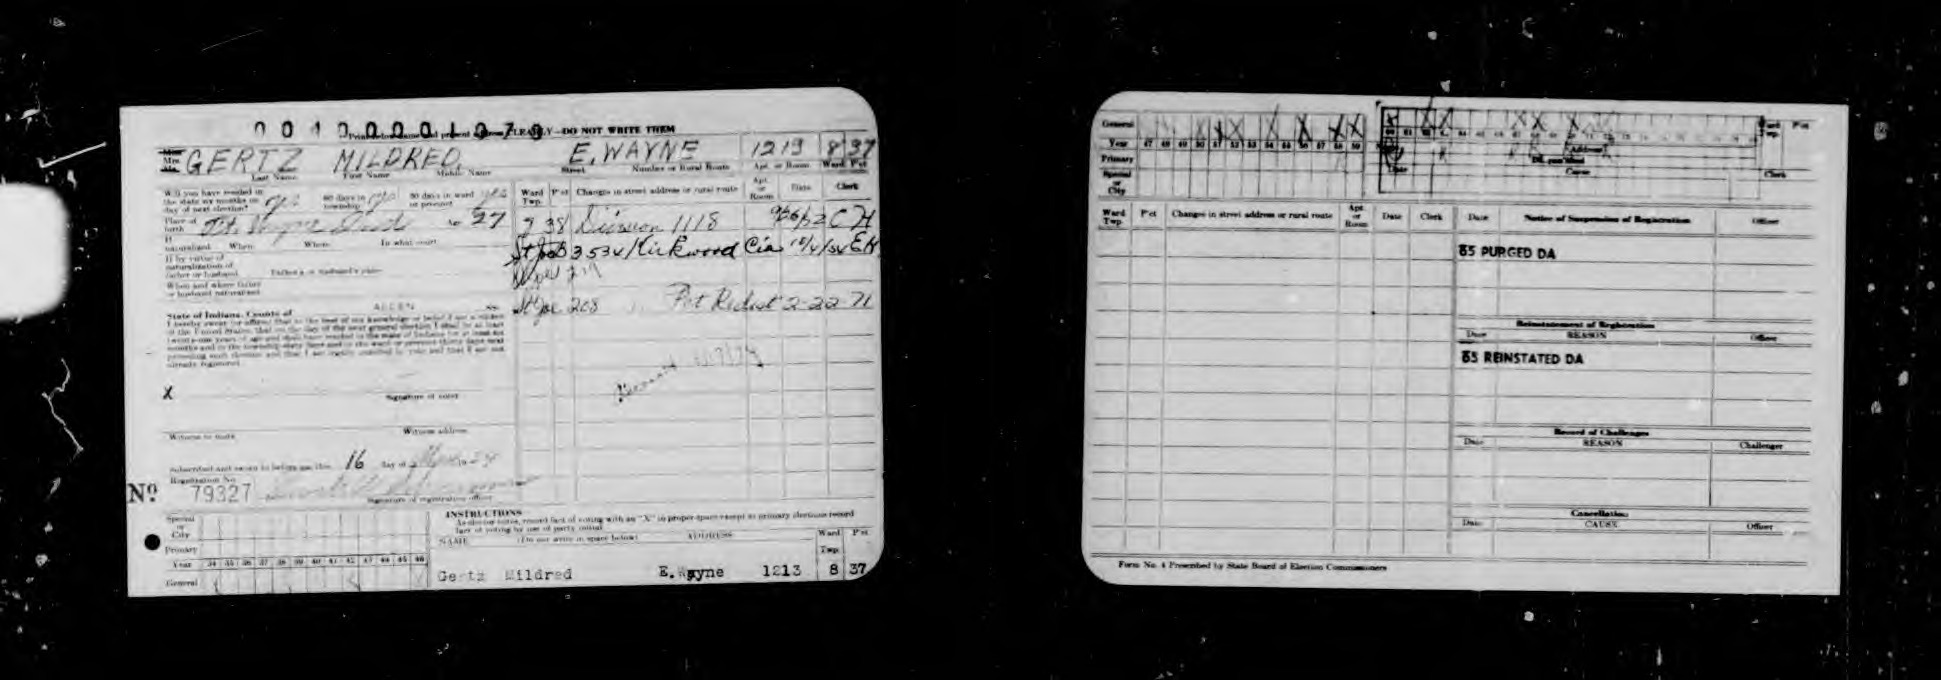 00400001070
Print below name and present address PLAINLY—DO NOT WRITE THEM
Mrs. GERTZ MILDRED. E. WAYNE 1213 8 37
Last Name First Name Middle Name Street Number or Rural Route Apt. or Room Ward Pct
Will you have resided in the state six months on day of next election? yes 60 days in township yes 30 days in ward or precinct yes
Place of birth Ft. Wayne Ind Age 27
If naturalized When Where In what court
If by virtue of naturalization of father or husband
When and where father or husband naturalized
ALLEN
State of Indiana, County of ss
I hereby swear (or affirm) that to the best of my knowledge or belief I am a citizen
of the United States, that on the day of the next general election I shall be at least
twenty-one years of age and shall have resided in the state of Indiana for at least six
months and in the township sixty days and in the ward or precinct thirty days next
preceding such election and that I am legally entitled to vote and that I am not
already registered.
X
Signature of voter
Witness to mark Witness address
Subscribed and sworn to before me this 16 day of
Registration No.
No. 79327
Signature of registration officer
Ward Twp. Pct Changes in street address or rural route Apt. or Room Date Clerk
38 Division 1118 9/26/52 C H
St Joe 3 3534 Kirkwood Cir 10/4/56 EH
St Joe 208 Pct Redist 2-22-71
Special or City
Primary
Year 34 35 36 37 38 39 40 41 42 43 44 45 46
General
INSTRUCTIONS
As elector votes, record fact of voting with an "X" in proper space except in primary elections record
fact of voting by use of party initial
NAME (Do not write in space below) ADDRESS Ward Twp. Pct
Gertz Mildred E. Wayne 1213 8 37
General X X X X X X X
Year 47 48 49 50 51 52 53 54 55 56 57 58 59
Primary
Special or City
Ward Twp. Pct
Date Cause Clerk
Ward Twp. Pct Changes in street address or rural route Apt. or Room Date Clerk
Date Notice of Suspension of Registration Officer
65 PURGED DA
Reinstatement of Registration
Date REASON Officer
65 REINSTATED DA
Record of Challenges
Date REASON Challenger
Cancellation
Date CAUSE Officer
Form No. 4 Prescribed by State Board of Election Commissioners